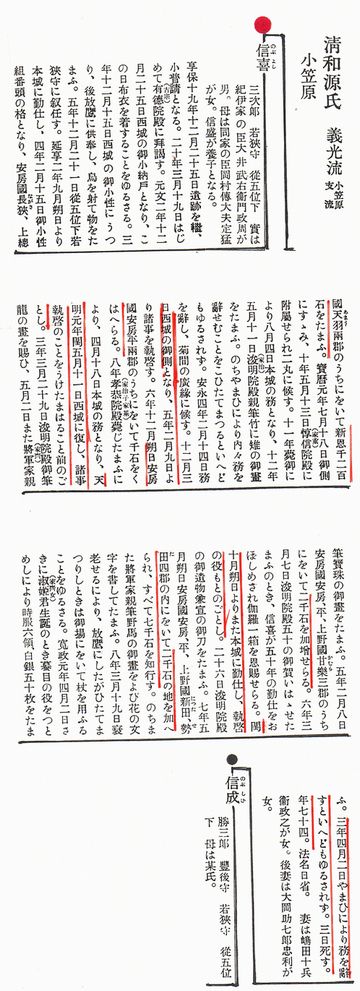 清和源氏 義光流 小笠原支流
小笠原
信喜 のぶよし
三次郎 若狭守 從五位下 實は
紀伊家の臣大井武右衛門政周が
男。母は同家の臣岡村傳大夫定猛
が女。信盛が養子となる。
享保十九年十二月二十五日遺跡を繼、
小普請となる。二十年三月十九日はじ
めて有德院殿に拜謁す。元文二年十二
月二十五日西城の御小納戸となり、こ
の日布衣を着することをゆるさる。三
年十二月十五日西城の御小性にうつ
り、後放鷹に供奉し、鳥を射て物をた
まふ。五年十二月二十一日從五位下若
狭守に叙任す。延享二年九月朔日より
本城に勤仕し、四年二月十五日御小性
組番頭の格となり、安房國長狭、上總
國天羽兩郡のうちにをいて新恩千二百
石をたまふ。寶曆元年七月十八日御側
にすゝみ、十年五月十三日惇信院殿に
附屬せられ二丸に候す。十一年薨御に
より八月四日本城の務となり、十二年
五月十一日浚明院殿親筆竹に雄の御畫
をたまふ。のちやまひにより内々務を
辭せむことをこひたてまつるといへど
もゆるされず。安永四年二月十四日務
を辭し、菊間の廣縁に候す。十二月三
日西城の御側となり、五年二月九日よ
り諸事を執啓す。六年十二月朔日安房
國安房平兩郡のうちにをいて千石をく
はへらる。八年孝恭院殿薨じたまふに
より、四月十八日本城の務となり、天
明元年閏五月十一日西城に復し、諸事
執啓のことをうけたまはること前のご
とし。三年三月二十九日浚明院殿御筆
龍の畫を賜ひ、五月二日また將軍家親
筆寶珠の御畫をたまふ。五年二月八日
安房國安房、平、上野國甘樂三郡のうち
にをいて二千石を加増せらる。六年三
月七日浚明院殿五十の御賀いはゝせた
まふのとき、信喜が五十年の勤仕をお
ほしめされ伽羅一箱を恩賜せらる。閏
十月朔日よりまた本城に勤仕し、執啓
の役もとのごとし。二十六日浚明院殿
の御遺物來宣の御刀をたまふ。七年五
月朔日安房國安房、平、上野國新田、勢
田四郡の内にをいて二千石の地を加へ
られ、すべて七千石を知行す。のちま
た將軍家親筆野馬の御畫をよび花の文
字を書してたまふ。八年三月十九日衰
老せるにより、放鷹にしたがひたてま
つりしときは御場にをいて杖を用ふる
ことをゆるさる。寛政元年四月二日さ
きに淑姫君生誕のとき蟇目の役をつと
めしにより時服六領、白銀五十枚をたま
ふ。三年四月二日やまひにより務を辭
すといへどもゆるされず。三日死す。
年七十四。法名日省。 妻は嶋田十兵
衛政之が女。後妻は大岡助七郎忠利が
女。
信成 のぶしげ
勝三郎 豐後守 若狭守 從五位
下 母は某氏。